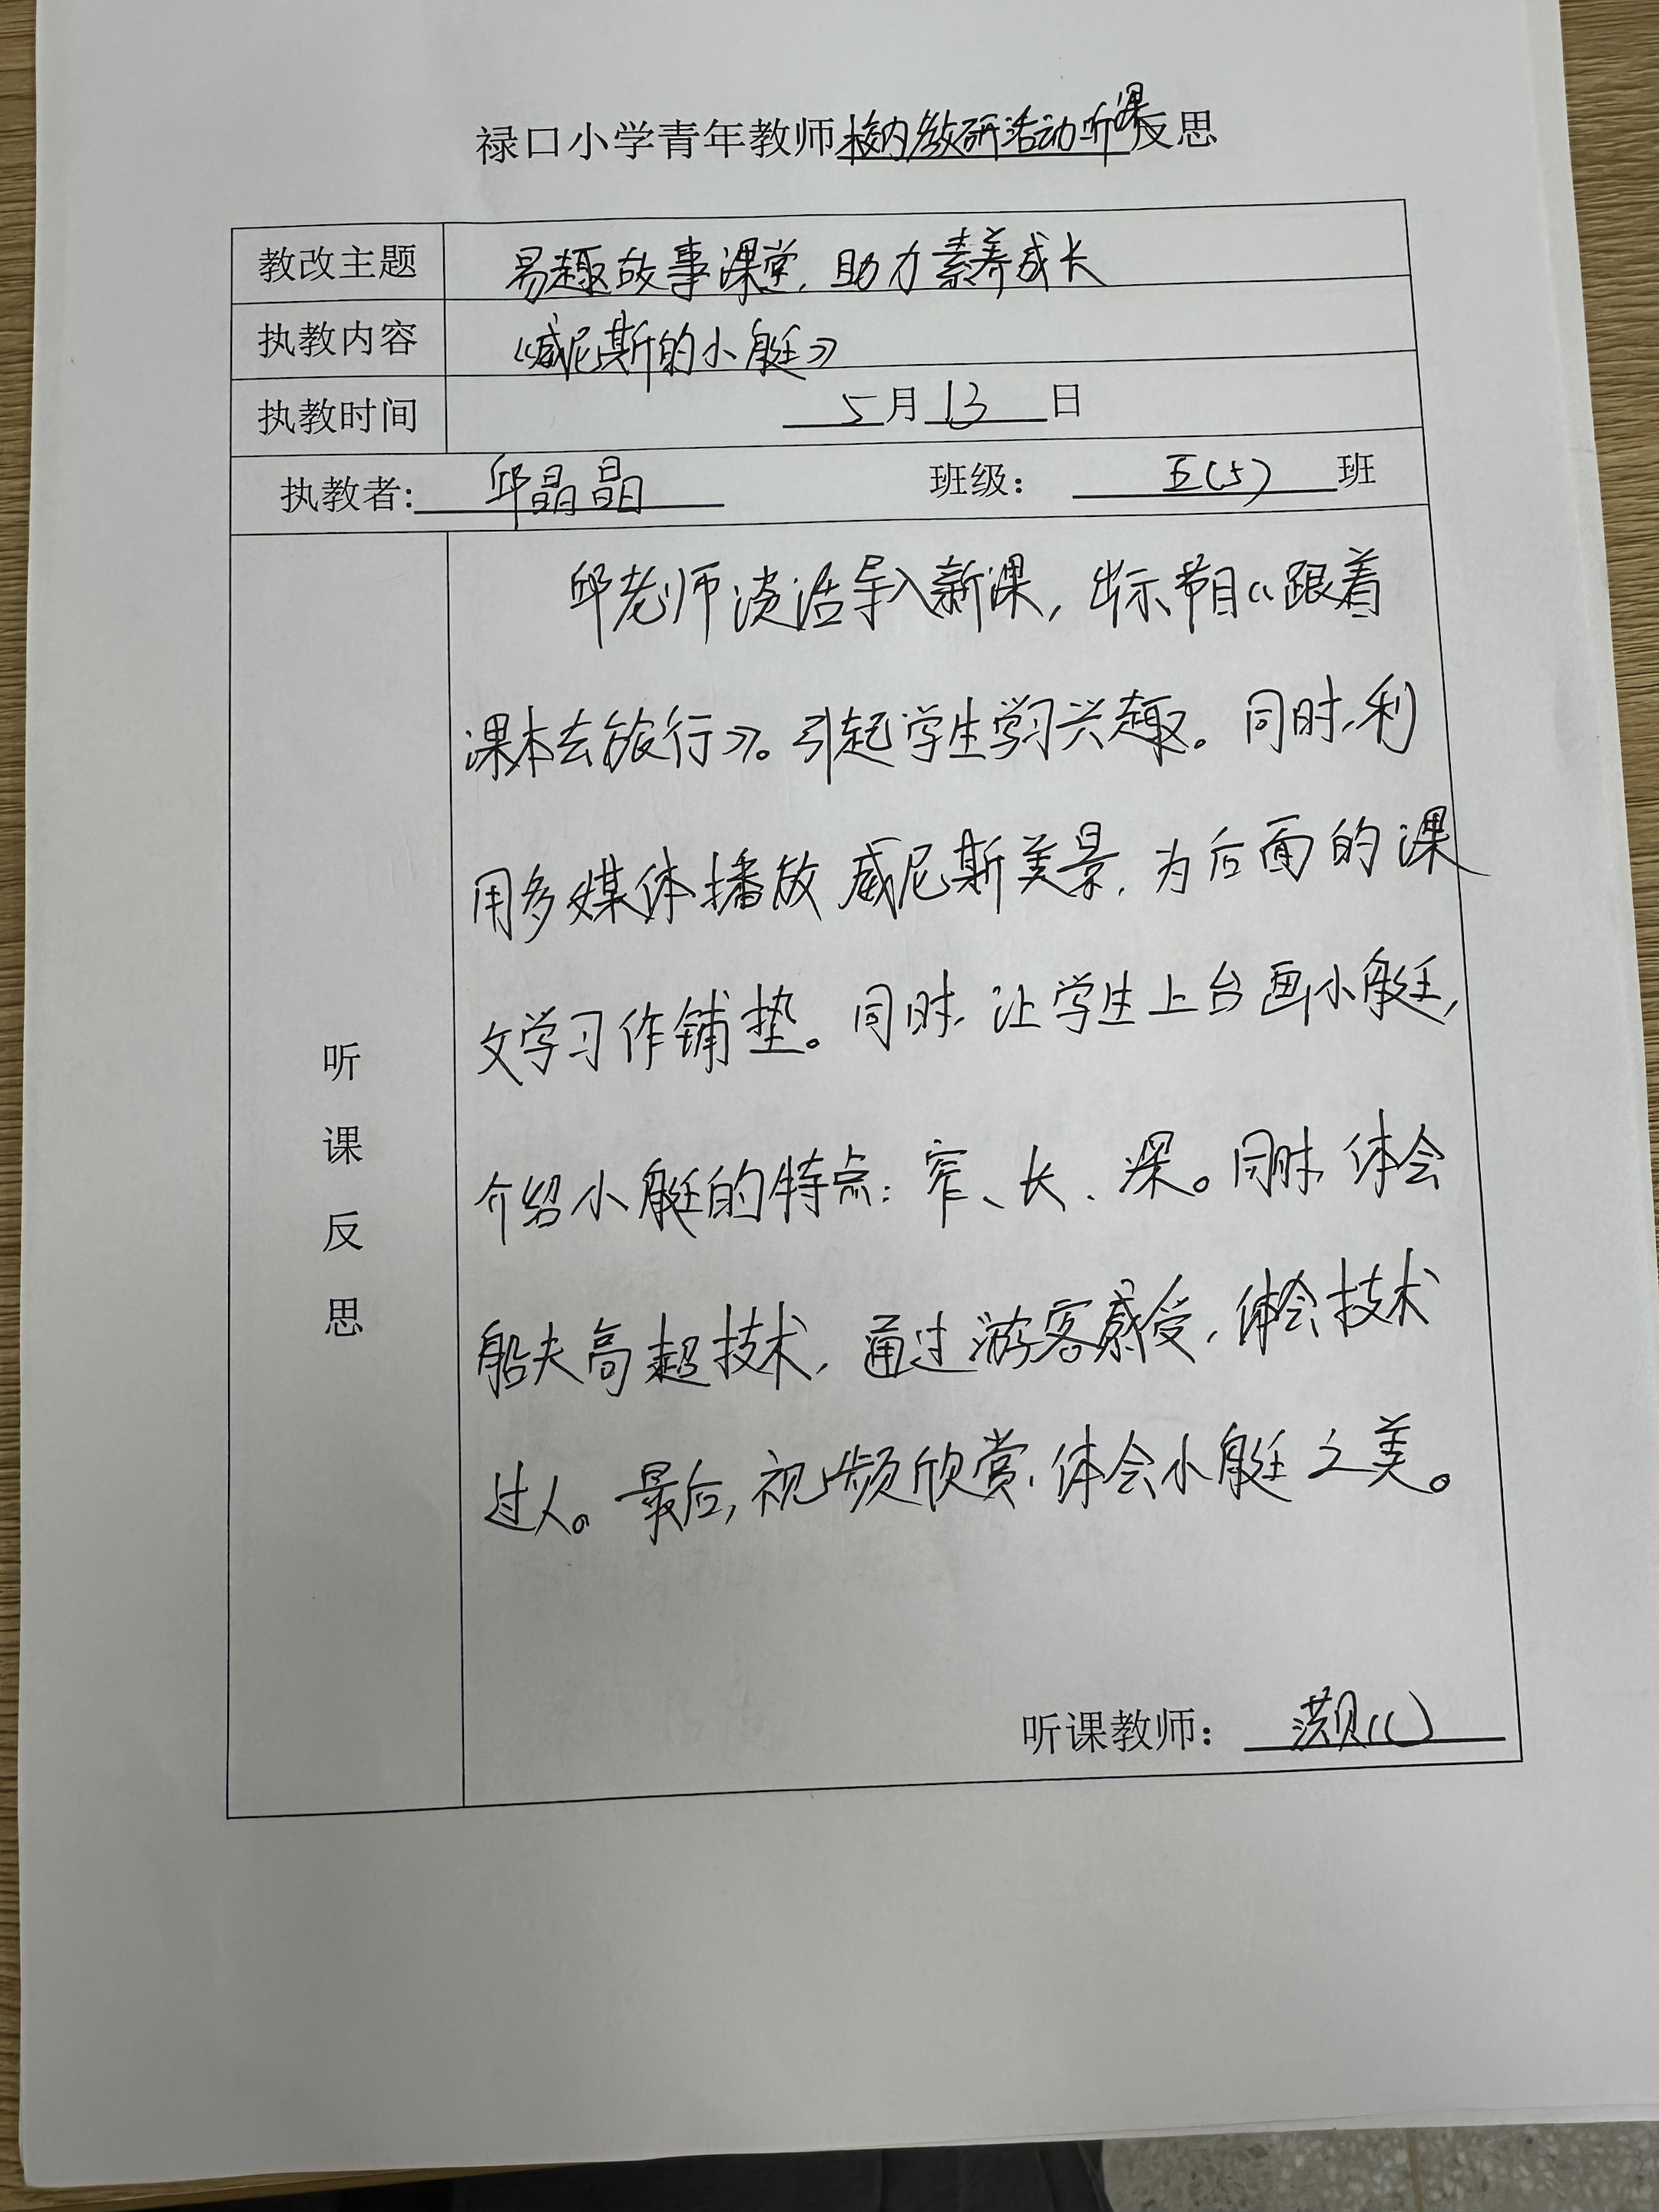 禄口小学青年教师校内教研活动听课反思
教改主题 易趣故事课堂，助力素养成长
执教内容 《威尼斯的小艇》
执教时间 5月13日
执教者：邱晶晶 班级：五(5)班
听课反思
邱老师谈话导入新课，出示节目《跟着
课本去旅行》。引起学生学习兴趣。同时，利
用多媒体播放威尼斯美景，为后面的课
文学习作铺垫。同时，让学生上台画小艇，
介绍小艇的特点：窄、长、深。同时，体会
船夫高超技术，通过游客感受，体会技术
过人。最后，视频欣赏，体会小艇之美。
听课教师：